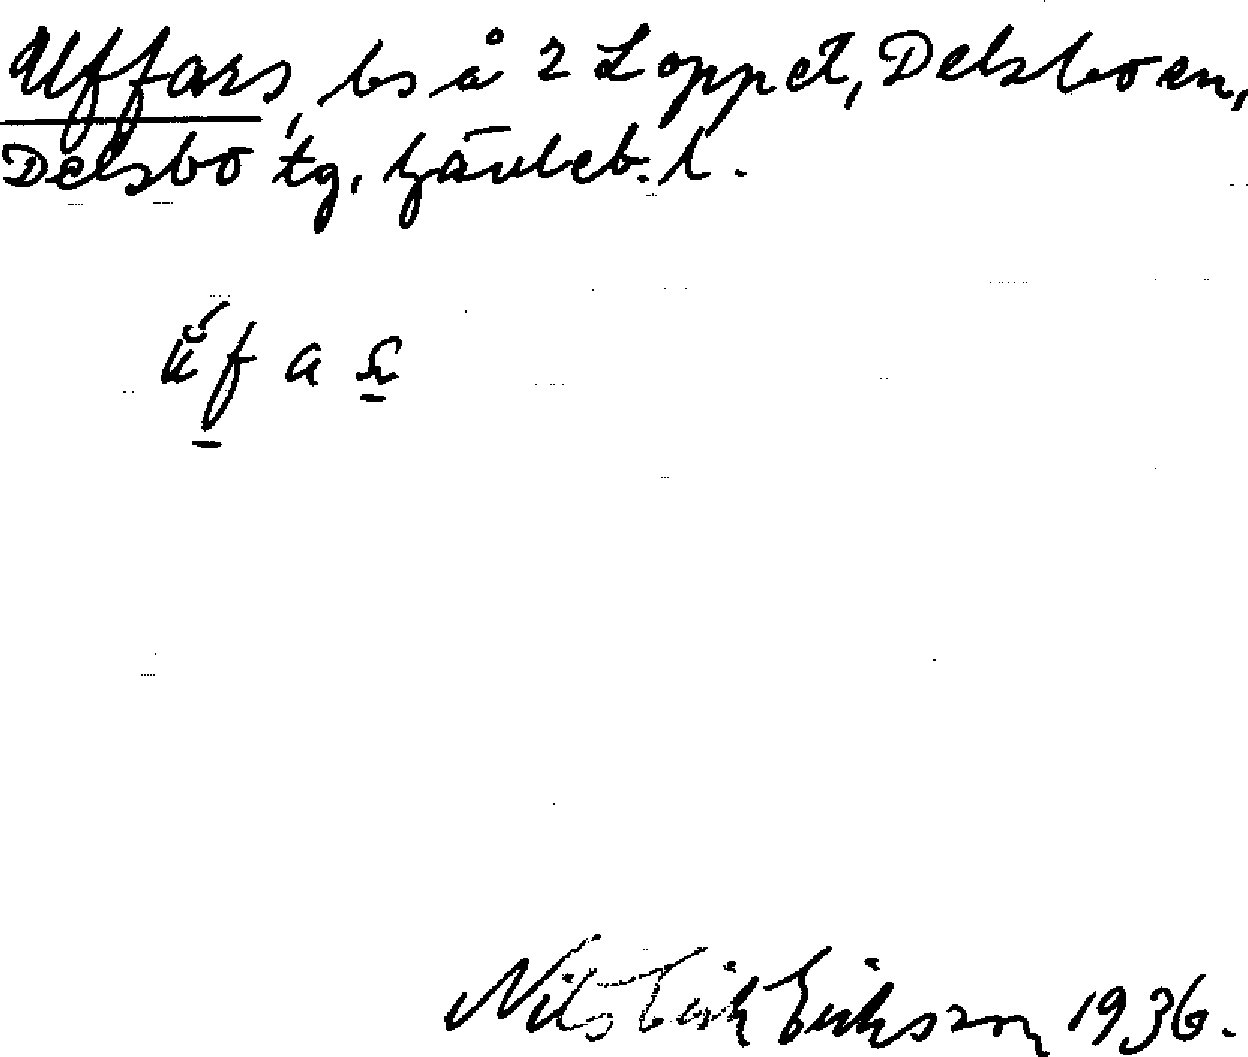 Uffars, bs å 2 Loppet, Delsbo sn,
Delsbo tg, Gävleb. l.
Nils Erik Eriksson 1936.